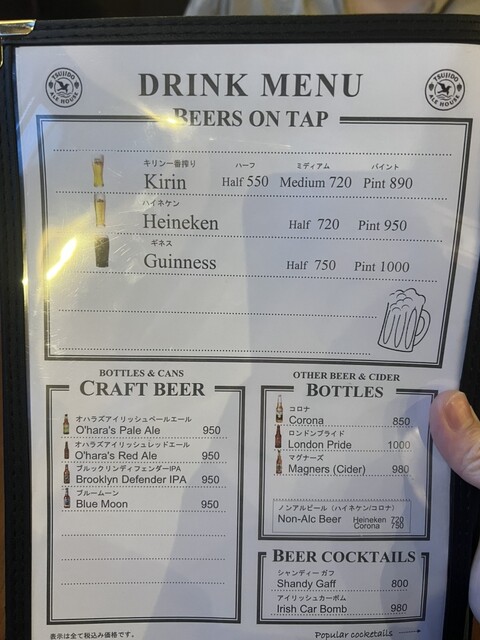 TSUJIDO ALE HOUSE
DRINK MENU
TSUJIDO ALE HOUSE
BEERS ON TAP
キリン一番搾り ハーフ ミディアム パイント
Kirin Half 550 Medium 720 Pint 890
ハイネケン
Heineken Half 720 Pint 950
ギネス
Guinness Half 750 Pint 1000
BOTTLES & CANS
CRAFT BEER
オハラズアイリッシュペールエール
O'hara's Pale Ale 950
オハラズアイリッシュレッドエール
O'hara's Red Ale 950
ブルックリンディフェンダーIPA
Brooklyn Defender IPA 950
ブルームーン
Blue Moon 950
OTHER BEER & CIDER
BOTTLES
コロナ
Corona 850
ロンドンプライド
London Pride 1000
マグナーズ
Magners (Cider) 980
ノンアルビール（ハイネケン/コロナ）
Non-Alc Beer Heineken 720
Corona 750
BEER COCKTAILS
シャンディー ガフ
Shandy Gaff 800
アイリッシュカーボム
Irish Car Bomb 980
表示は全て税込み価格です。
Popular cocktails